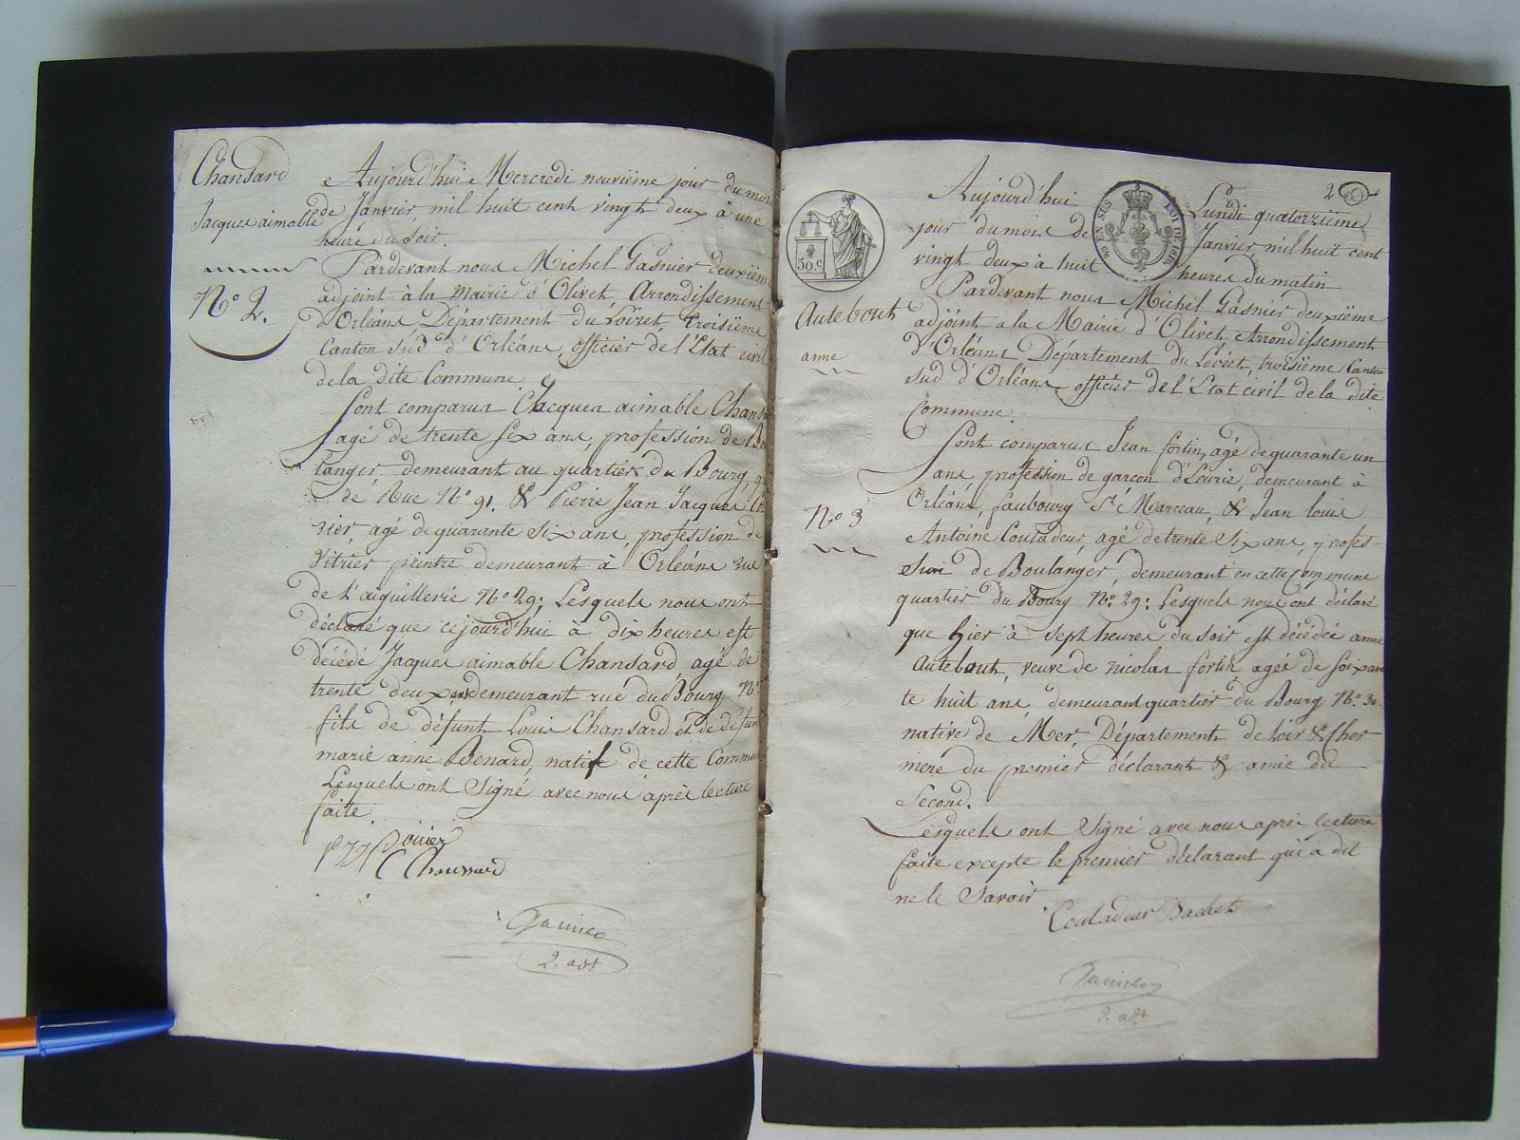 Chansard
Jacques aimable
N.° 2.
Aujourd'hui Mercredi neuvième jour du mois
de Janvier, mil huit cent vingt deux à une
heure du soir.
Pardevant nous Michel Gasnier deuxièm
adjoint à la mairie d'Olivet, Arrondissement
d'Orléans, Département du Loiret, troisième
Canton sud d'Orléans, officier de l'Etat civil
de la dite Commune.
Sont comparus Jacques aimable Chans
agé de trente six ans, profession de Bou
langer, demeurant au quartier du Bourg,
de Rue N.° 91. & Pierre Jean Jacques
rier, agé de quarante six ans, profession de
Vitrier peintre demeurant à Orléans rue
de l'aiguillerie N.° 29: Lesquels nous ont
déclaré que cejourd'hui à dix heures est
décédé Jacques aimable Chansard, agé de
trente deux ans demeurant rue du Bourg N.°
fils de défunt Louis Chansard et de défun
marie anne Benard, natif de cette Commu
Lesquels ont Signé avec nous après lecture
faite.
Chansard
2. adt
2
50 c
Autebout
anne
N.° 3
Aujourd'hui Lundi quatorzième
jour du mois de Janvier, mil huit cent
vingt deux à huit heures du matin
Pardevant nous Michel Gasnier deuxième
adjoint a la Mairie d'Olivet, Arrondissement
d'Orléans Département du Loiret, troisième Canton
sud d'Orléans officier de l'Etat civil de la dite
Commune.
Sont comparus Jean fortin, agé de quarante un
ans, profession de garçon d'Ecurie, demeurant à
Orléans, faubourg St. Marceau, & Jean louis
Antoine Coutadeur, agé de trente six ans, profes-
sion de Boulanger, demeurant en cette Commune
quartier du Bourg N.° 29: Lesquels nous ont déclaré
que hier à sept heures du soir est décédée anne
Autebout, veuve de nicolas fortin agée de soixan
te huit ans, demeurant quartier du Bourg N.° 30.
native de Mer, Département de loir & Cher
mere du premier déclarant & amie du
Second.
Lesquels ont Signé avec nous après lecture
faite excepte le premier déclarant qui a dit
ne le Savoir.
Coutadeur
2. adt